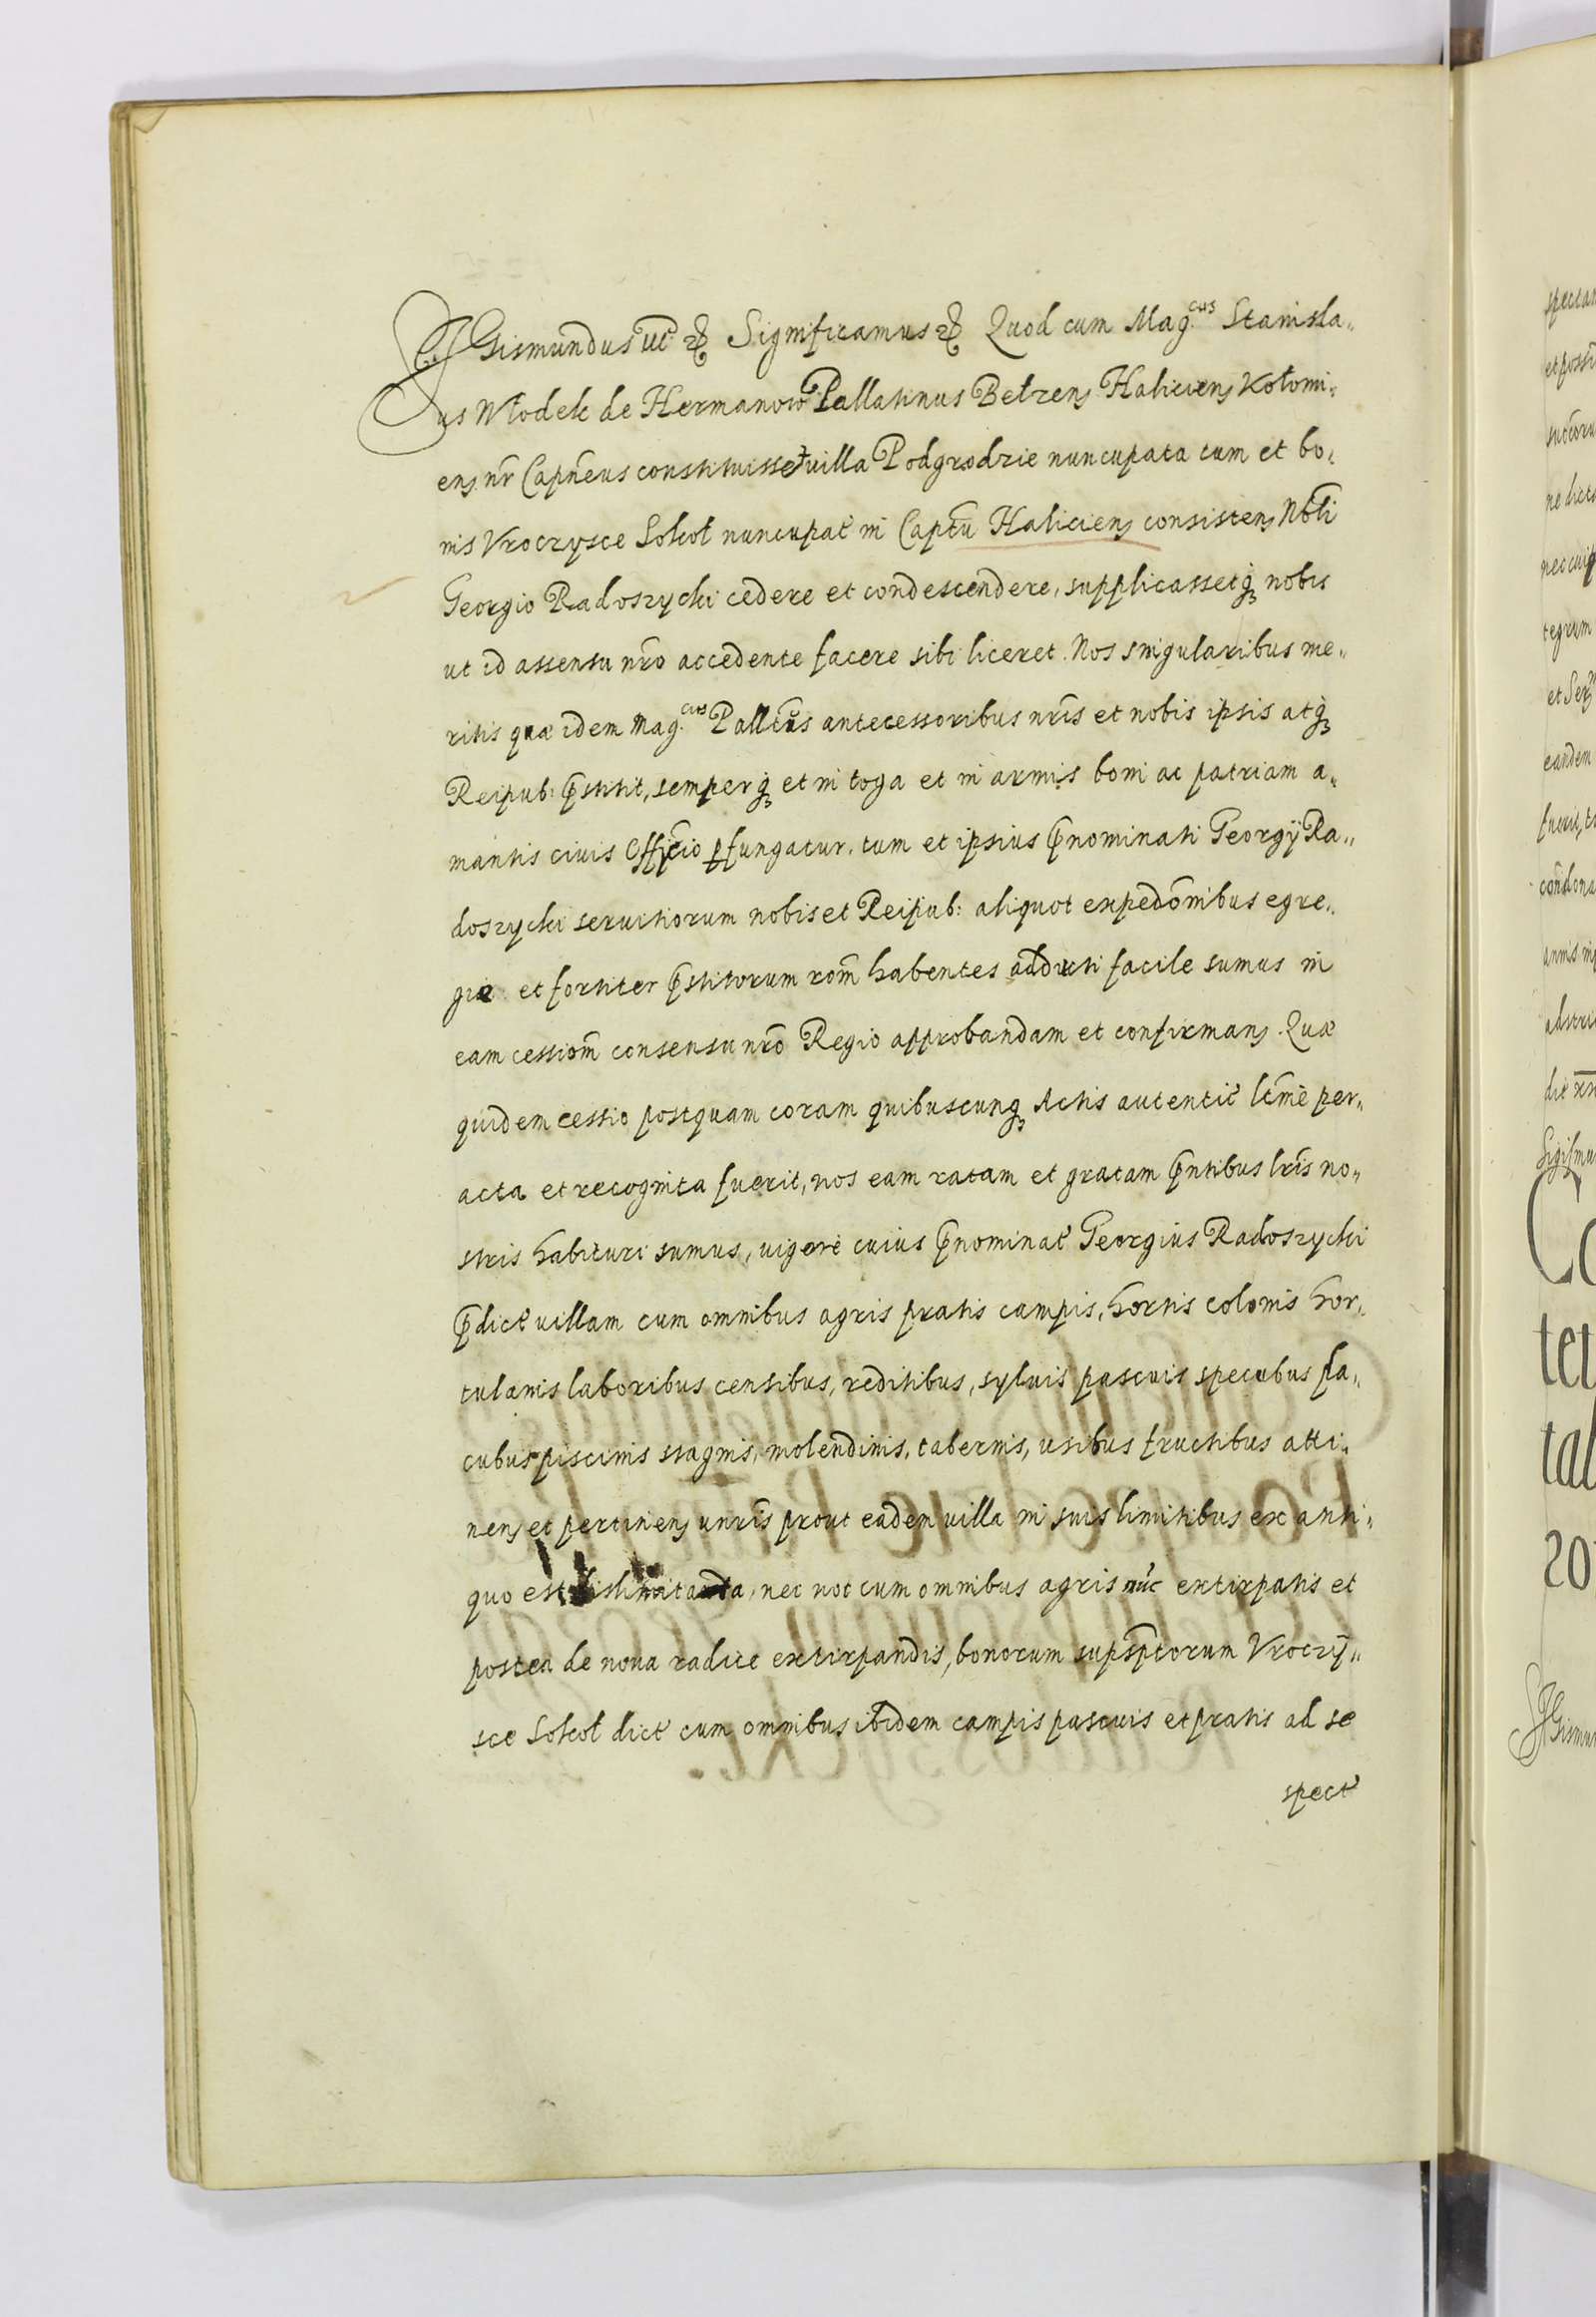 SiGismundus IIIᵘˢ etc Significamus etc Quod cum Mag.cus Stanisla„
us Włodek de Hermanow Pallatinus Bełzens Haliciens Kołomi„
ens nr̃ Capñeus constituisset villa Podgrodzie nuncupata cum et bo„
nis Vroczysce Sokoł nuncupat̃ in Captũ Haliciens consistens Nobli
Georgio Radoszycki cedere et condescendere, supplicassetq₃ nobis
ut id assensu nr̃o accedente facere sibi liceret. Nos singularibus me„
ritis quæ idem Mag.cus Palltñs antecessoribus nr̃is et nobis ipsis atq₃
Reipub: p̃stitit, semperq₃ et in toga et in armis boni ac patriam a„
mantis ciuis officio p̱fungatur, tum et ipsius p̃nominati Georgÿ Ra„
doszycki seruitiorum nobis et Reipub: aliquot expedõnibus egre„
gie et fortiter p̃stitorum rõm habentes adducti facile sumus in
eam cessiõm consensu nr̃o Regio approbandam et confirmans. Quæ
quidem cessio postquam coram quibuscunq₃ Actis autentic̃ ltm̃e per„
acta et recognita fuerit, nos eam ratam et gratam p̃ntibus lr̃is no„
stris habituri sumus, uigore cuius p̃nominat̃ Georgius Radoszycki
p̃dict̃ uillam cum omnibus agris pratis campis, hortis colonis hor„
tulanis laboribus censibus, reditibus, syluis pascuis specubus la„
cubus piscinis stagnis, molendinis, tabernis, usibus fructibus atti„
nens et pertinens unr̃is prout eadem uilla in suis limitibus ex anti„
quo est, nec not cum omnibus agris nũc extirpatis et
postea de noua radice extirpandis, bonorum supsp̃torum Vroczÿ„
sce Sokoł dict̃ cum omnibus ibidem campis pascuis et pratis ad se
spect̃